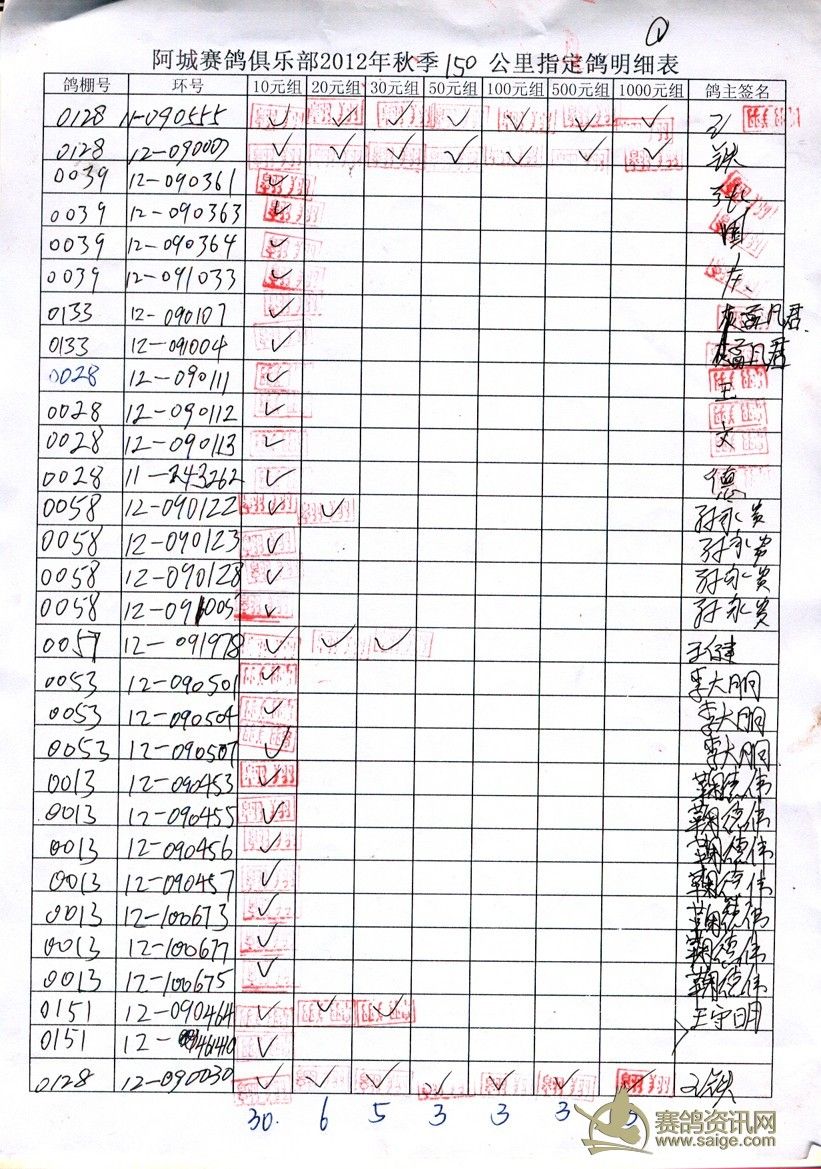 ①
阿城赛鸽俱乐部2012年秋季150公里指定鸽明细表
鸽棚号 环号 10元组 20元组 30元组 50元组 100元组 500元组 1000元组 鸽主签名
0128 11-090555 ✓ ✓ ✓ ✓ ✓ ✓ ✓ 王
0128 12-090007 ✓ ✓ ✓ ✓ ✓ ✓ ✓ 铁
0039 12-090361 ✓ 张
0039 12-090363 ✓ 国
0039 12-090364 ✓
0039 12-091033 ✓
0133 12-090107 ✓
0133 12-091004 ✓
0028 12-090111 ✓ 王
0028 12-090112 ✓
0028 12-090113 ✓ 文
0028 11-243262 ✓ 德
0058 12-090122 ✓ ✓ 孙永贵
0058 12-090123 ✓ 孙永贵
0058 12-090128 ✓ 孙永贵
0058 12-091005 ✓ 孙永贵
0057 12-091978 ✓ ✓ ✓ 王健
0053 12-090501 ✓ 李大朋
0053 12-090504 ✓ 李大朋
0053 12-090507 ✓ 李大朋
0013 12-090453 ✓ 鞠德伟
0013 12-090455 ✓ 鞠德伟
0013 12-090456 ✓ 鞠德伟
0013 12-090457 ✓ 鞠德伟
0013 12-100673 ✓ 鞠德伟
0013 12-100677 ✓ 鞠德伟
0013 12-100675 ✓ 鞠德伟
0151 12-090464 ✓ ✓ ✓ 王守明
0151 12- ✓
0128 12-090030 ✓ ✓ ✓ ✓ ✓ ✓ ✓ 王铁
30. 6 5 3 3 3 3
赛鸽资讯网
www.saige.com